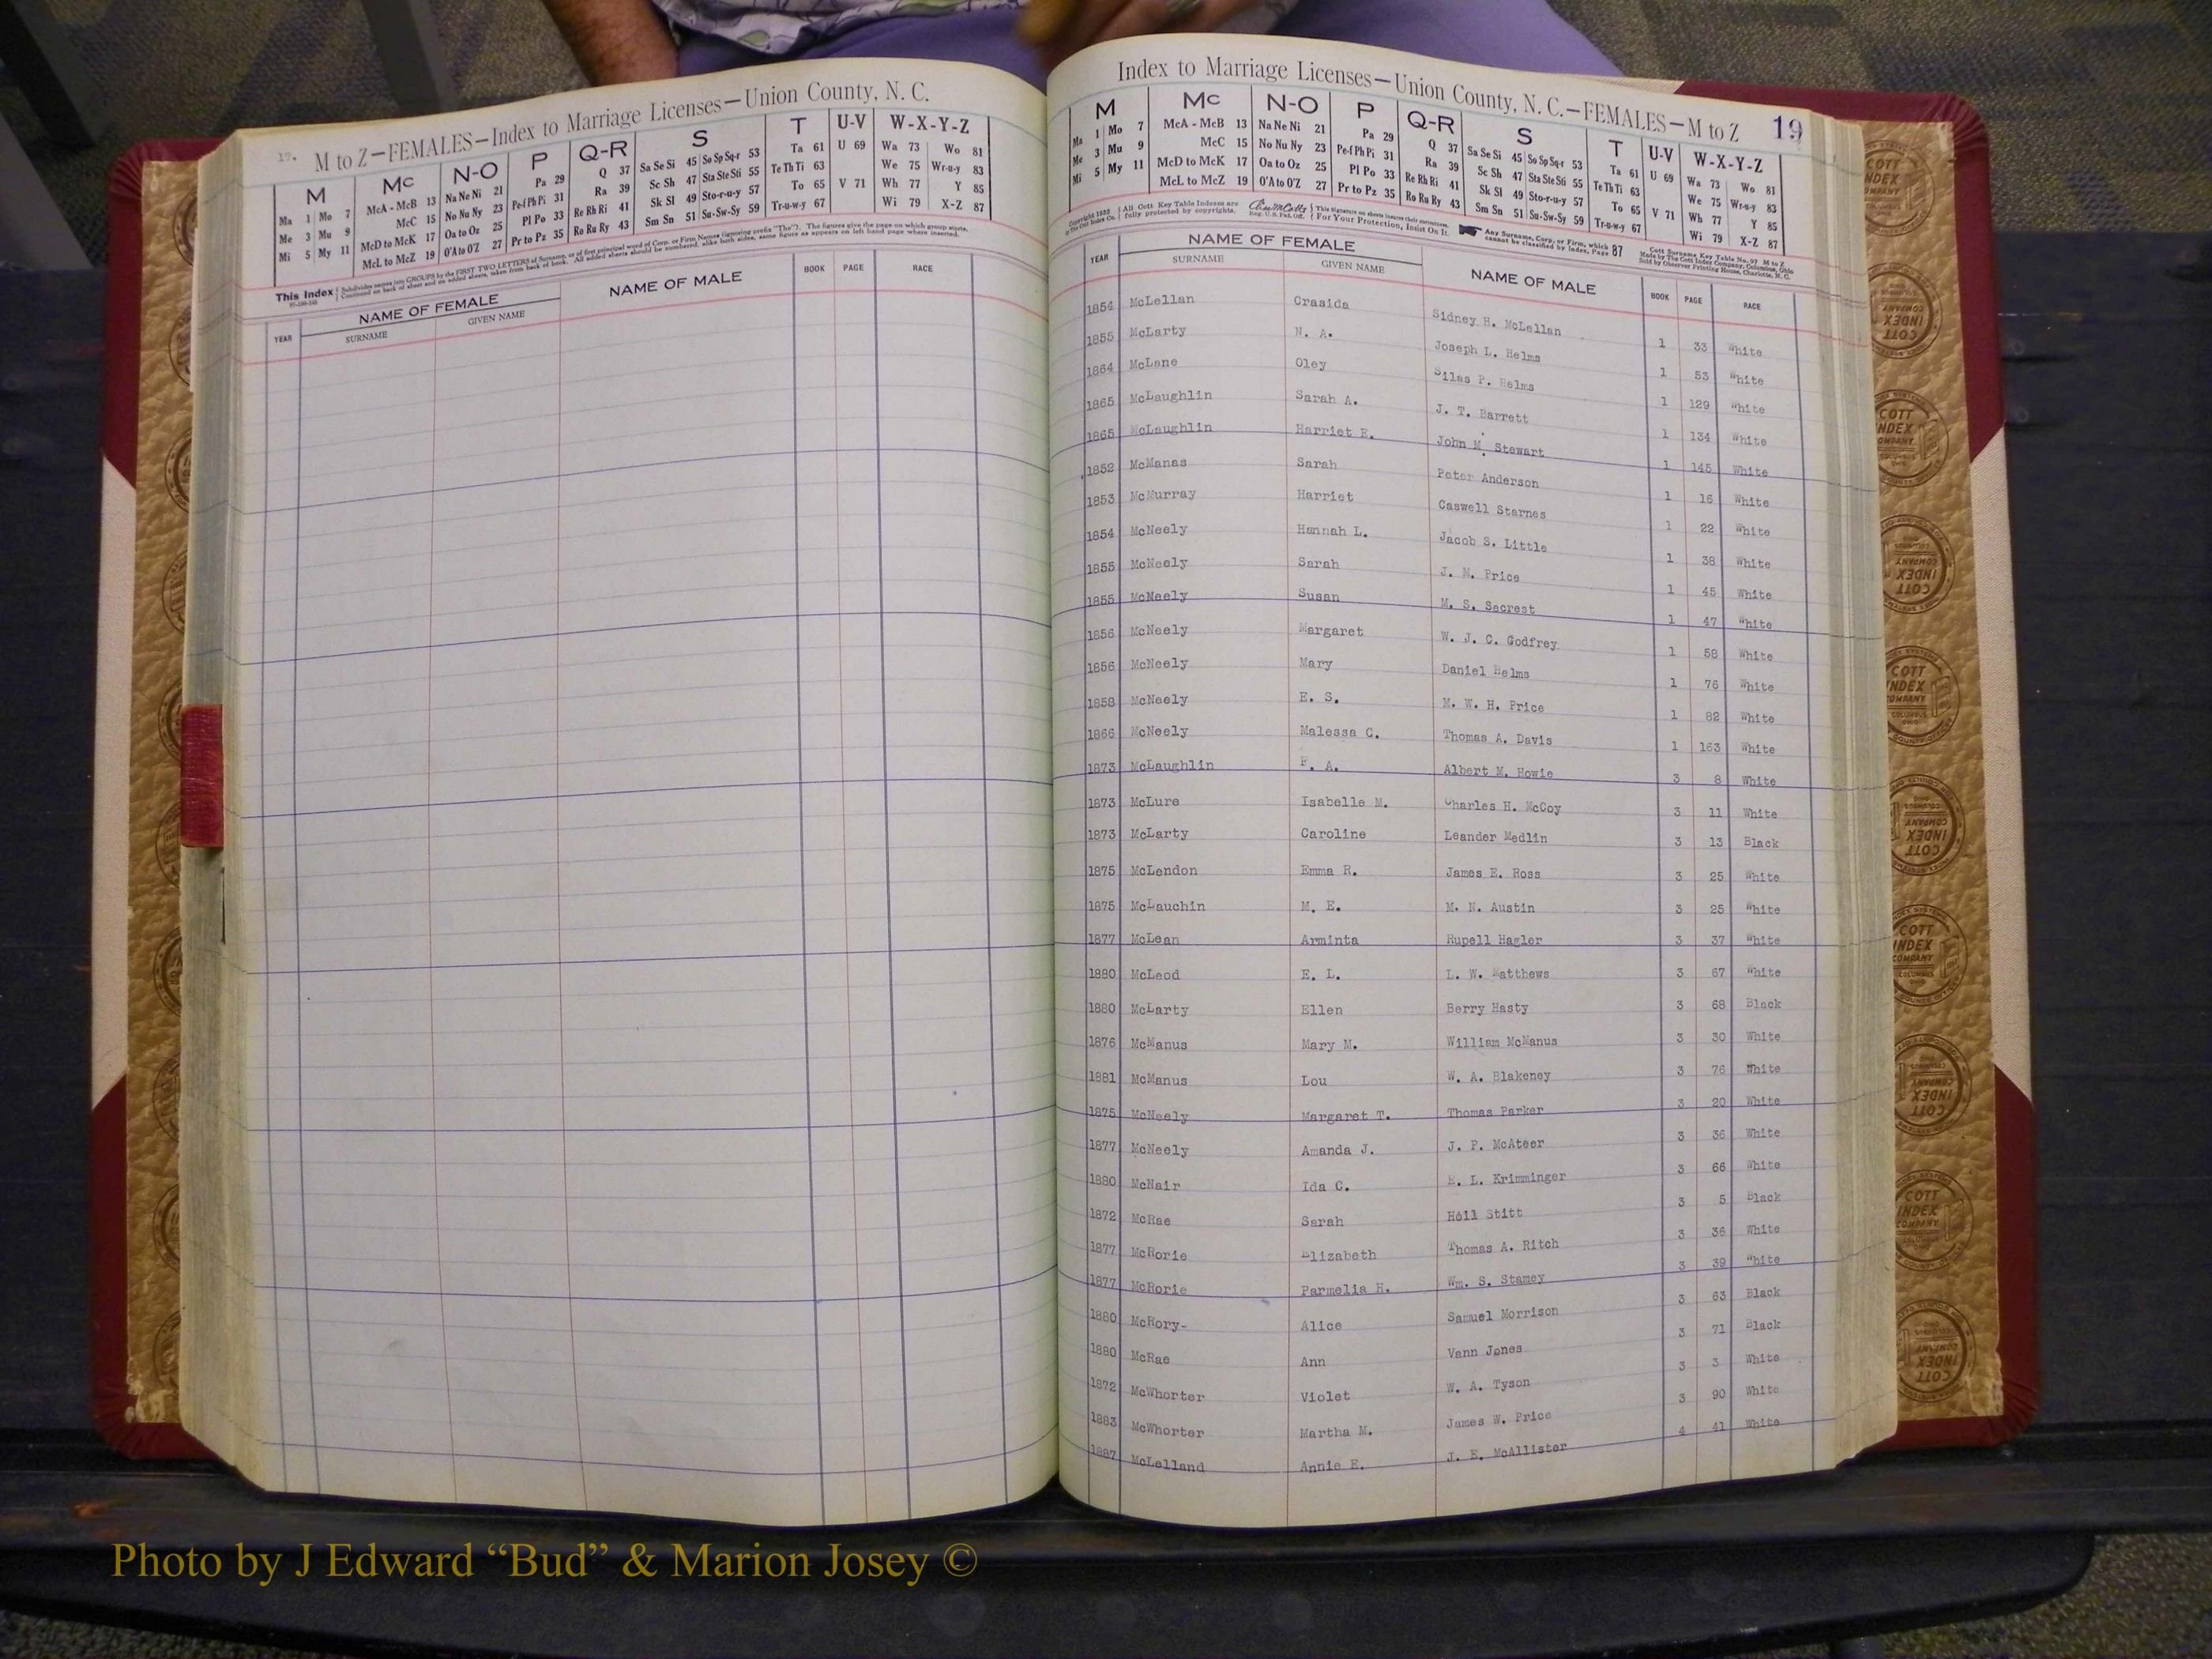 17.
M to Z—FEMALES—Index to Marriage Licenses—Union County, N. C.
M Mc N-O P Q-R S T U-V W-X-Y-Z
Ma 1 Mo 7 McA - McB 13 Na Ne Ni 21 Pa 29 Q 37 Sa Se Si 45 So Sp Sq-r 53 Ta 61 U 69 Wa 73 Wo 81
Me 3 Mu 9 McC 15 No Nu Ny 23 Pe-f Ph Pi 31 Ra 39 Sc Sh 47 Sta Ste Sti 55 Te Th Ti 63 We 75 Wr-u-y 83
Mi 5 My 11 McD to McK 17 Oa to Oz 25 Pl Po 33 Re Rh Ri 41 Sk Sl 49 Sto-r-u-y 57 To 65 V 71 Wh 77 Y 85
McL to McZ 19 O'A to O'Z 27 Pr to Pz 35 Ro Ru Ry 43 Sm Sn 51 Su-Sw-Sy 59 Tr-u-w-y 67 Wi 79 X-Z 87
This Index Subdivides names into GROUPS by the FIRST TWO LETTERS of Surname, or of first principal word of Corp. or Firm Names (ignoring prefix "The"). The figures give the page on which group starts.
Continued on back of sheet and on added sheets, taken from back of book. All added sheets should be numbered, alike both sides, same figure as appears on left hand page where inserted.
YEAR NAME OF FEMALE NAME OF MALE BOOK PAGE RACE
SURNAME GIVEN NAME
Index to Marriage Licenses—Union County, N. C.—FEMALES—M to Z 19
M Mc N-O P Q-R S T U-V W-X-Y-Z
Ma 1 Mo 7 McA - McB 13 Na Ne Ni 21 Pa 29 Q 37 Sa Se Si 45 So Sp Sq-r 53 Ta 61 U 69 Wa 73 Wo 81
Me 3 Mu 9 McC 15 No Nu Ny 23 Pe-f Ph Pi 31 Ra 39 Sc Sh 47 Sta Ste Sti 55 Te Th Ti 63 We 75 Wr-u-y 83
Mi 5 My 11 McD to McK 17 Oa to Oz 25 Pl Po 33 Re Rh Ri 41 Sk Sl 49 Sto-r-u-y 57 To 65 V 71 Wh 77 Y 85
McL to McZ 19 O'A to O'Z 27 Pr to Pz 35 Ro Ru Ry 43 Sm Sn 51 Su-Sw-Sy 59 Tr-u-w-y 67 Wi 79 X-Z 87
All Cott Key Table Indexes are fully protected by copyrights. This Signature on sheets insures their correctness. For Your Protection, Insist On It. Any Surname, Corp. or Firm, which cannot be classified by Index, Page 87
Cott Surname Key Table No. 97 M to Z
Made by The Cott Index Company, Columbus, Ohio
Sold by Observer Printing House, Charlotte, N. C.
YEAR NAME OF FEMALE NAME OF MALE BOOK PAGE RACE
SURNAME GIVEN NAME
1854 McLellan Crasida Sidney H. McLellan 1 33 White
1855 McLarty N. A. Joseph L. Helms 1 53 White
1864 McLane Oley Silas P. Helms 1 129 White
1865 McLaughlin Sarah A. J. T. Barrett 1 134 White
1865 McLaughlin Harriet E. John M. Stewart 1 145 White
1852 McManas Sarah Peter Anderson 1 16 White
1853 McMurray Harriet Caswell Starnes 1 22 White
1854 McNeely Hannah L. Jacob S. Little 1 38 White
1855 McNeely Sarah J. M. Price 1 45 White
1855 McNeely Susan M. S. Secrest 1 47 White
1856 McNeely Margaret W. J. C. Godfrey 1 58 White
1856 McNeely Mary Daniel Helms 1 76 White
1858 McNeely E. S. M. W. H. Price 1 82 White
1866 McNeely Malessa C. Thomas A. Davis 1 163 White
1873 McLaughlin F. A. Albert M. Howie 3 8 White
1873 McLure Isabelle M. Charles H. McCoy 3 11 White
1873 McLarty Caroline Leander Medlin 3 13 Black
1875 McLendon Emma R. James E. Ross 3 25 White
1875 McLauchin M. E. M. N. Austin 3 25 White
1877 McLean Arminta Rupell Hagler 3 37 White
1880 McLeod E. L. L. W. Matthews 3 67 White
1880 McLarty Ellen Berry Hasty 3 68 Black
1876 McManus Mary M. William McManus 3 30 White
1881 McManus Lou W. A. Blakeney 3 76 White
1875 McNeely Margaret T. Thomas Parker 3 20 White
1877 McNeely Amanda J. J. P. McAteer 3 36 White
1880 McNair Ida C. E. L. Krimminger 3 66 White
1872 McRae Sarah Holl Stitt 3 5 Black
1877 McRorie Elizabeth Thomas A. Ritch 3 36 White
1877 McRorie Parmelia H. Wm. S. Stamey 3 39 White
1880 McRory- Alice Samuel Morrison 3 63 Black
1880 McRae Ann Vann Jones 3 71 Black
1872 McWhorter Violet W. A. Tyson 3 3 White
1883 McWhorter Martha M. James W. Price 3 90 White
1887 McLelland Annie E. J. E. McAllister 4 41 White
Photo by J Edward “Bud” & Marion Josey ©